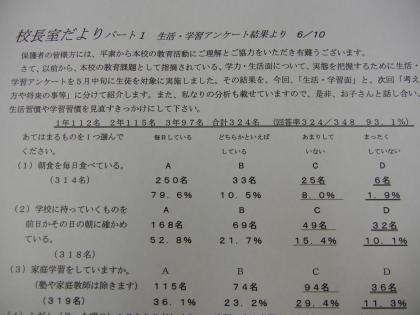 校長室だより パート1 生活・学習アンケート結果より 6/10
保護者の皆様方には、平素から本校の教育活動にご理解とご協力をいただき有難うございます。
さて、以前から、本校の教育課題として指摘されている、学力・生活面について、実態を把握するために生活・
学習アンケートを5月中旬に生徒を対象に実施しました。その結果を、今回、「生活・学習面」と、次回「考え
方や将来の事等」に分けて紹介します。また、私なりの分析も載せていますので、是非、お子さんと話し合い、
生活習慣や学習習慣を見直すきっかけにして下さい。
1年112名 2年115名 3年97名 合計324名 (回答率324/348 93.1%)
あてはまるものを1つ選んで 毎日している どちらかといえば あまりして まったく
ください。 している いない していない
(1)朝食を毎日食べている。 A B C D
(314名) 250名 33名 25名 6名
79.6% 10.5% 8.0% 1.9%
(2)学校に持っていくものを A B C D
前日かその日の朝に確かめ 168名 69名 49名 32名
ている。 52.8% 21.7% 15.4% 10.1%
(318名)
(3)家庭学習をしていますか。 A B C D
(塾や家庭教師は除きます) 115名 74名 94名 36名
(319名) 36.1% 23.2% 29.4% 11.3%